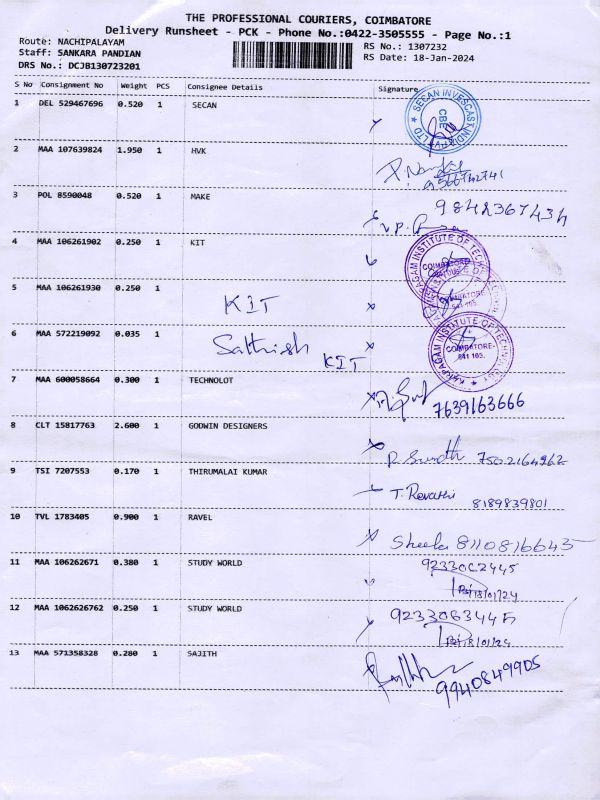 THE PROFESSIONAL COURIERS, COIMBATORE
Delivery Runsheet - PCK - Phone No.:0422-3505555 - Page No.:1
Route: NACHIPALAYAM
Staff: SANKARA PANDIAN
DRS No.: DCJB130723201
RS No.: 1307232
RS Date: 18-Jan-2024
S No Consignment No Weight PCS Consignee Details Signature
1 DEL 529467696 0.520 1 SECAN
CBE
2 MAA 107639824 1.950 1 HVK
3 POL 8590048 0.520 1 MAKE 9842367434
4 MAA 106261902 0.250 1 KIT
5 MAA 106261930 0.250 1 KIT
6 MAA 572219092 0.035 1 Sathish KIT
KARPAGAM INSTITUTE OF TECHNOLOGY
COIMBATORE-
641 105.
7 MAA 600058664 0.300 1 TECHNOLOT 7639163666
8 CLT 15817763 2.600 1 GODWIN DESIGNERS 7502164962
9 TSI 7207553 0.170 1 THIRUMALAI KUMAR T. Revathi 8189839801
10 TVL 1783405 0.900 1 RAVEL Sheela 8110816645
11 MAA 106262671 0.380 1 STUDY WORLD 9233062445
18/01/24
12 MAA 1062626762 0.250 1 STUDY WORLD
18/01/24
13 MAA 571358328 0.280 1 SAJITH 9940849905